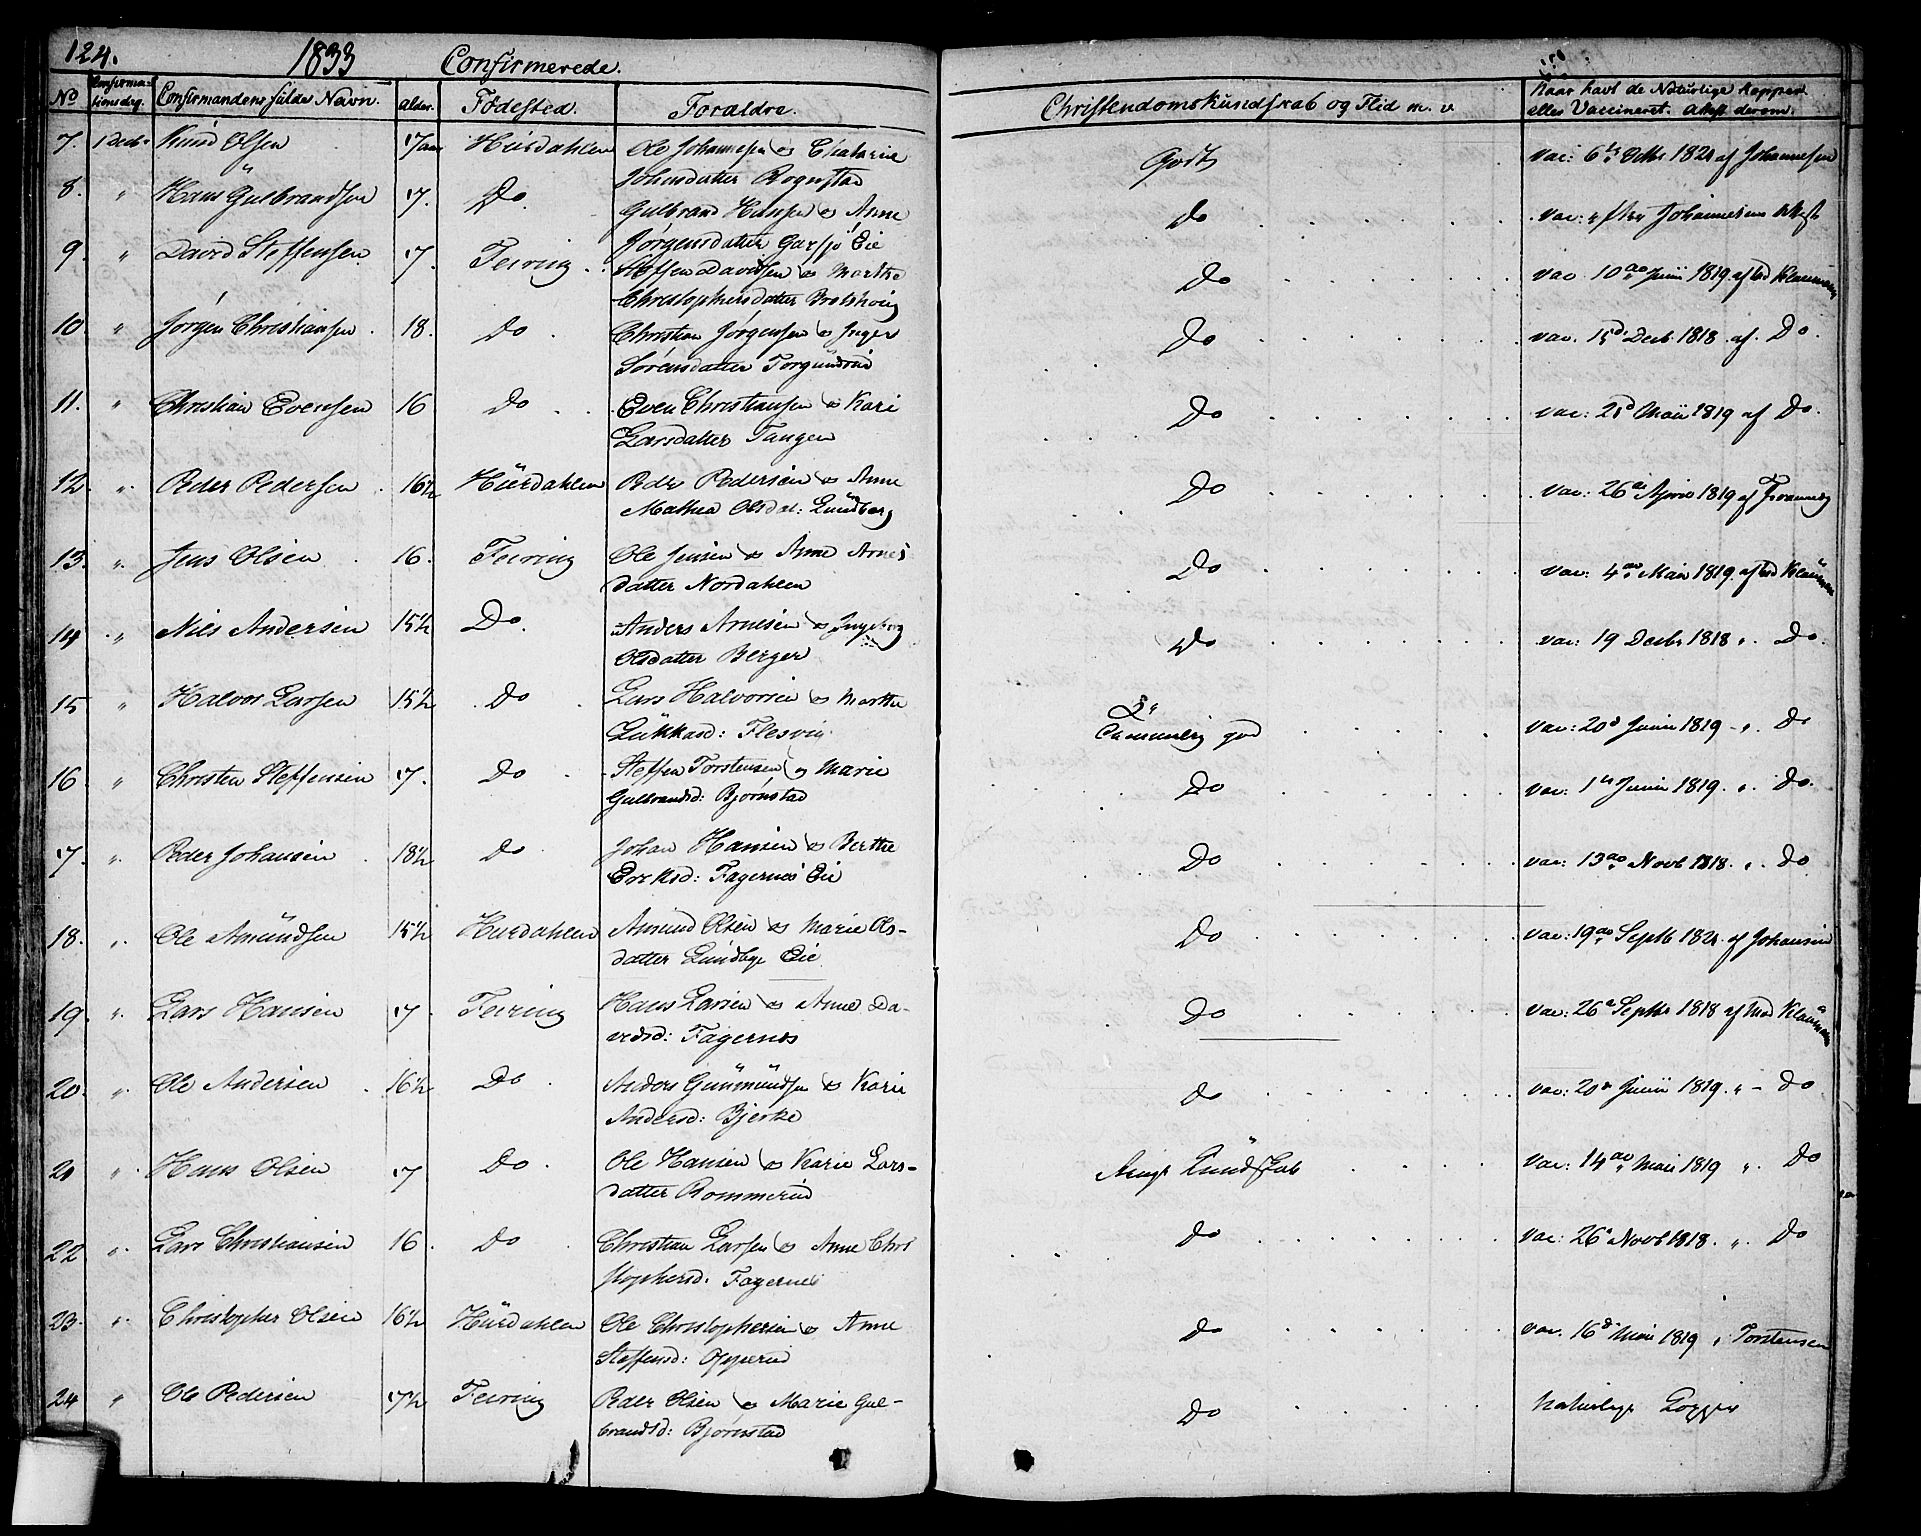 124. 1833 Confirmerede.
No Confirmationsdag. Confirmandens fulde Navn. alder. Fødested. Foraldre. Christendomskundskab og Flid m. v. Naar havt de Naturlige Kopper
eller Vaccineret. Attest derom.
7. 1 Decb. Knud Olsen 17 aar Hürdahlen Ole Johannesen og
Johnsdatter Rognstad Godt vac: 6te 1821 af Johannesen
8. " Hans Gulbrandsen 17. Do Gulbrand Hansen og Anne
Jørgensdatter Garsjø Eie do vac: Johannesens Attest
9. " David Steffensen 17. Feiring Steffen Davidsen og Marthe
Christophersdatter Do vac 10 Junii 1819 af
10. " Jørgen Christiansen 18. Do Christian Jørgensen og Inger
Sørensdatter Torgundrud Do vac. 15d Decb. 1818 af Do.
11. " Christian Evensen 16 Do Even Christiansen og Kari
Larsdatter Tangen Do vac: 25d Maii 1819 af Do.
12. " Peder Pedersen 16½ Hürdahlen Peder Pedersen og Anne
Mathea Olsdat: Lundberg Do vac: 26de April 1819 af
13. " Jens Olsen 16. Feiring Ole Jensen og Anne Arnes
datter Nordahlen Do vac: 4 Maii 1819 af
14. " Nils Andersen 15½ Do. Anders Arnesen og Ingeborg
Olsdatter Berger Do vac: 19 Decbr 1818 " Do.
15 " Halvor Larsen 15½ Do Lars Halvorsen og Marthe
Flesvig god vac: 20d Junii 1819 - " Do
16 " Christen Steffensen 17. Do Steffen Torstensen og Marie
Gulbrandsd: Bjørnstad Do vac: 1 Junii 1819. " Do.
17. " Peder Johansen 18½ Do Johan Hansen og Berthe
Eriksd: Fagernes Eie Do vac: 13 Novb 1818. " Do
18. " Ole Amündsen 15½ Hurdahlen Amund Olsen og Marie Ols-
datter Lundbye Eie Do vac: 19 Septb 1821 af Johansen
19. " Lars Hansen 17. Feiring Hans Larsen og Anne Da-
vidsd: Fagernes Do vac: 26 Septbr 1818 af
20. " Ole Andersen 16½ Do Anders Gunmundsen og Karie
Andersd: Bjerke do vac: 20 Junii 1819. " - Do
21 " Hans Olsen 17 Do Ole Hansen og Karie Lars-
datter Rommerud Ringe Kundskab vac: 14 Maii 1819 " Do
22 " Lars Christiansen 16. Do Christian Larsen og Anne Chri
stophersd. Fagernes Do vac: 26 Novb 1818. " Do
23. " Christopher Olsen 16½ Hürdahlen Ole Christophersen og Anne
Steffensd: Opperud Do vac. 16d Maii 1819 " Torstensen
24 " Ole Pedersen 17½ Feiring Peder Olsen og Marie Gul-
brandsd: Bjørnstad Do Naturlige Kopper